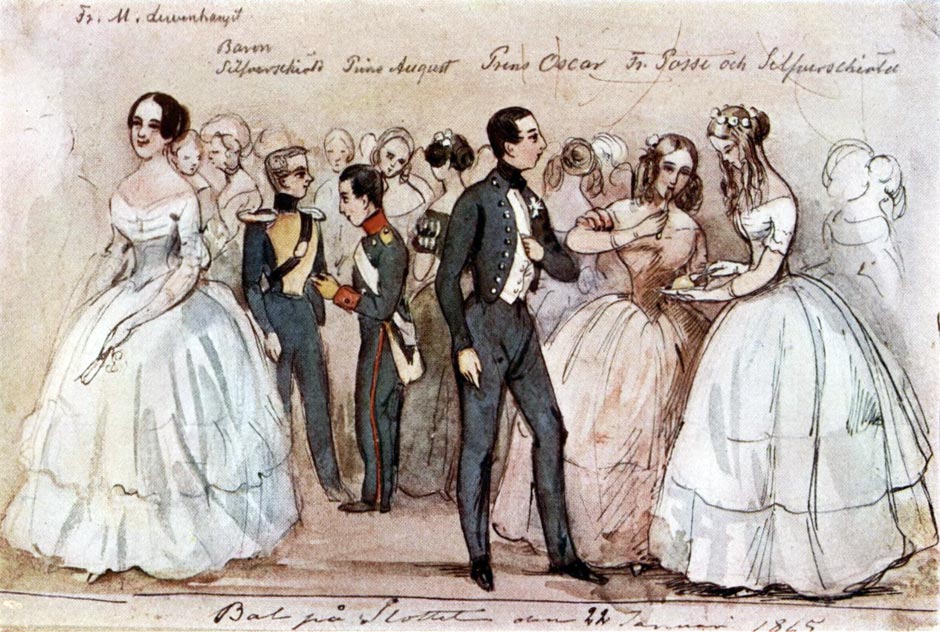 Fr. M. Lewenhaupt
Baron
Silfverschiöld Prins August Prins Oscar Fr. Posse och Silfverschiöld
Bal på Slottet den 22 Januari